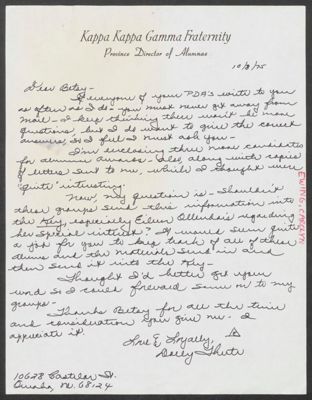 Kappa Kappa Gamma Fraternity
Province Director of Alumnae
10/8/75
Dear Betsy -
If everyone of your PDA's write to you
as often as I do - you must never get away from
mail - I keep thinking there won't be more
questions, but I do want to give the correct
answers, so I feel I must ask you -
I'm enclosing three more candidates
for alumnae awards - Also, along with copies
of letters sent to me, which I thought were
"quite" interesting.
Now, my question is - Shouldn't
these groups send this information into
the Key, especially Eileen regarding
her special interest? It would seem quite
a job for you to keep track of all of these
items and the materials sent in and
then send it into the Key.
Thought I'd better get your
word so I could forward same on to my
groups -
Thanks Betsy for all the time
and consideration you give me - I
appreciate it.
Love & Loyally,
10628 Castelar St.
Omaha, Ne. 68124
EWING, CAROLYN